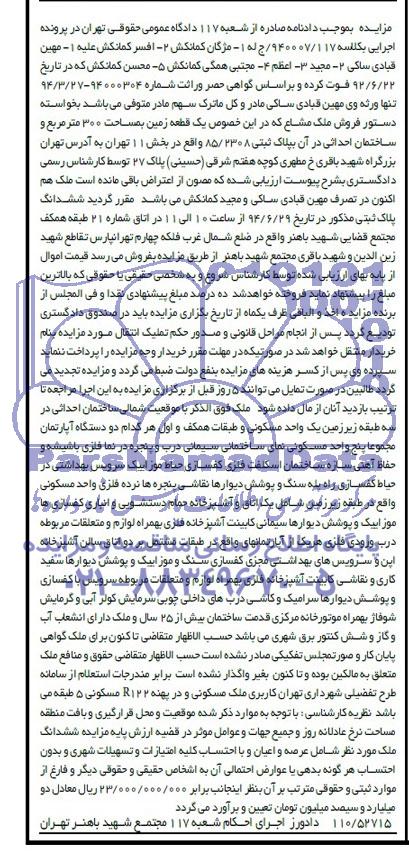 مزایـده بموجـب دادنامه صادره از شـعبه ۱۱۷ دادگاه عمومی حقوقـی تهران در پرونده
اجرایی بکلاسه ۹۴۰۰۰۷/۱۱۷/ج له ۱- مژگان کمانکش ۲- افسر کمانکش علیه ۱- مهین
قبادی ساکی ۲- مجید ۳- اعظم ۴- مجتبی همگی کمانکش ۵- محسن کمانکش که در تاریخ
۹۲/۶/۲۲ فـوت کرده و براسـاس گواهی حصر وراثت شـماره ۹۴۰۰۰۳۰۴-۹۴/۳/۲۷
تنها ورثه وی مهین قبادی ساکی مادر و کل ماترک سـهم مادر متوفی می باشـد بخواسـته
دستور فروش ملک مشاع که در این خصوص یک قطعه زمین بمساحت ۳۰۰ مترمربع و
ساختمان احداثی در آن بپلاک ثبتی ۸۵/۲۳۰۸ واقع در بخش ۱۱ تهران به آدرس تهران
بزرگراه شهید باقری خ مطهری کوچه هفتم شرقی (حسینی) پلاک ۲۷ توسط کارشناس رسمی
دادگستری بشرح پیوست ارزیابی شده که مصون از اعتراض باقی مانده است ملک هم
اکنون در تصرف مهین قبادی ساکی و مجید کمانکش می باشد مقرر گردید ششدانگ
پلاک ثبتی مذکور در تاریخ ۹۴/۶/۲۹ از ساعت ۱۰ الی ۱۱ در اتاق شماره ۲۱ طبقه همکف
مجتمع قضایی شـهید باهنر واقع در ضلع شـمال غرب فلکه چهارم تهرانپارس تقاطع شهید
زین الدین و شهید باقری مجتمع شهید باهنر از طریق مزایده بفروش می رسد قیمت اموال
از پایه بهای ارزیابی شده توسط کارشناس شروع و به شخصی حقیقی یا حقوقی که بالاترین
مبلغ را پیشنهاد نماید فروخته خواهدشد ده درصد مبلغ پیشنهادی نقدا و فی المجلس از
برنده مزایده اخذ و الباقی ظرف یکماه از تاریخ بگزاری مزایده باید در صندوق دادگستری
تودیـع گردد پـس از انجام مراحل قانونی و صـدور حکم تملیک انتقال مـورد مزایده بنام
خریدار منتقل خواهد شد در صورتیکه در مهلت مقرر خریدار وجه مزایده را پرداخت ننماید
سپرده وی پس از کسـر هزینه های مزایده بنفع دولت ضبط می گردد و مزایده تجدید می
گردد طالبین در صورت تمایل می توانند ۵ روز قبل از برگزاری مزایده به این اجرا مراجعه تا
ترتیب بازدید آنان از مال داده شود ملک فوق الذکر با موقعیت شمالی ساختمان احداثی در
سه طبقه زیرزمین یک واحد مسکونی و طبقات همکف و اول هر کدام دو دستگاه آپارتمان
مجموعا پنج واحد مسـکونی نمای ساختمانی سـیمانی درب و پنجره در نما فلزی باشیشه و
حفاظ آهنی سـازه ساختمان اسکلت فلزی کفسازی حیاط موزاییک سرویس بهداشتی در
حیاط کفسازی راه پله سنگ و پوشش دیوارها نقاشی پنجره ها نرده فلزی واحد مسکونی
واقع در طبقه زیرزمین شـامل یک اتاق و آشپزخانه حمام دستشـویی و انباری کفسازی ها
موزاییک و پوشش دیوارها سیمانی کابینت آشپزخانه فلزی بهمراه لوازم و متعلقات مربوطه
درب ورودی فلزی هریک از آپارتمانهای واقع در طبقات مشتمل بر دو اتاق سالن آشپزخانه
اپن و سـرویس های بهداشـتی مجزی کفسازی سنگ و موزاییک و پوشش دیوارها سفید
کاری و نقاشـی کابینت آشپزخانه فلزی بهمراه لوازم و متعلقات مربوطه سرویس با کفسازی
و پوشـش دیوارها سرامیک و کاشـی درب های داخلی چوبی سرمایش کولر آبی و گرمایش
شوفاژ بهمراه موتورخانه مرکزی قدمت ساختمان بیش از ۲۵ سال و ملک دارای انشعاب آب
و گاز و شـش کنتور برق شهری می باشد حسب الاظهار متقاضی تا کنون برای ملک گواهی
پایان کار و صورتمجلس تفکیکی صادر نشده است حسب الاظهار متقاضی حقوق و منافع ملک
متعلق به مالکین بوده و تا کنون بغیر واگذار نشده است برابر مندرجات استعلام از سامانه
طرح تفضیلی شهرداری تهران کاربری ملک مسکونی و در پهنه R۱۲۲ مسکونی ۵ طبقه می
باشد نظریه کارشناسی: با توجه به موارد ذکر شده موقعیت و محل قرارگیری و بافت منطقه
مساحت نرخ عادلانه روز و جمیع جهات و عوامل موثر در قضیه ارزش پایه مزایده ششدانگ
ملک مورد نظر شـامل عرصه و اعیان و با احتساب کلیه امتیازات و تسهیلات شهری و بدون
احتساب هر گونه بدهی یا عوارض احتمالی آن به اشخاص حقیقی و حقوقی دیگر و فارغ از
موارد ثبتی و حقوقی مترتب بر آن بنظر اینجانب برابر ۲۳/۰۰۰/۰۰۰/۰۰۰ ریال معادل دو
میلیارد و سیصد میلیون تومان تعیین و برآورد می گردد
۱۱۰/۵۲۷۱۵ دادورز اجرای احـکام شعبه ۱۱۷ مجتمـع شـهید باهنـر تهـران
پایگاه اطلاع رسانی مناقصه و مزایده
۰۲۱-۸۸۳۴۹۶۷۰-۵